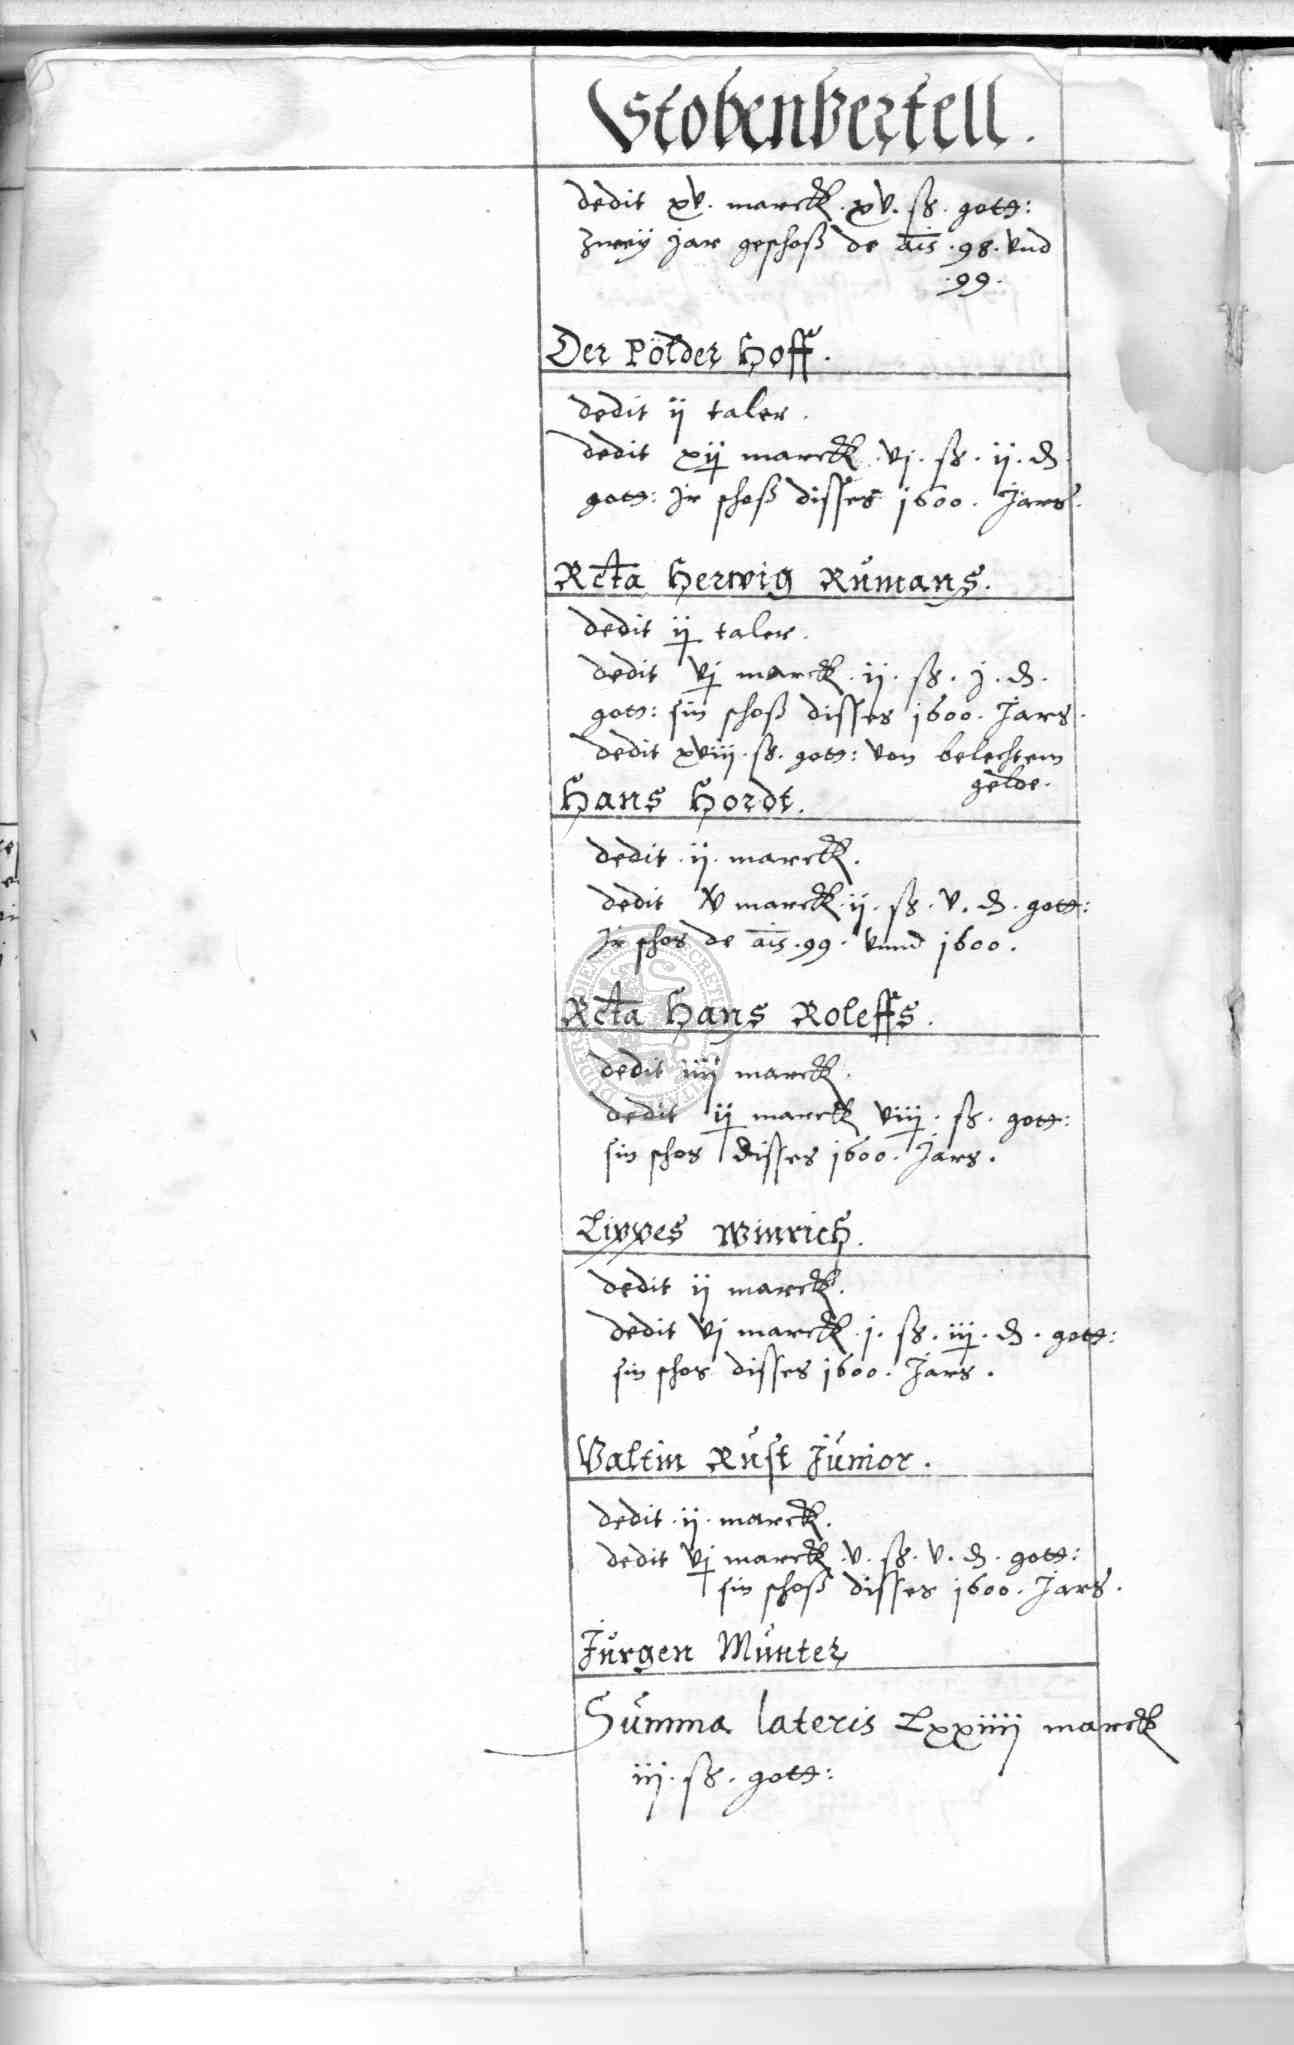 Stobenvertell.
dedit xv. marck. xv. ß. gott:
zwey jar geschoß de ais .98. vnd
.99.
Der Pölder Hoff.
dedit ij taler.
dedit xij marck. vj. ß. ij. d.
gott: Jr schoß disses 1600. Jars.
Rcta Herwig Rumans.
dedit ij taler.
dedit vj marck. ij. ß. j. d.
gott: sin schoß disses 1600. Jars.
dedit xviij. ß. gott: von belechtem
gelde.
Hans Hordt.
dedit .ij. marck.
dedit v marck. ij. ß. v. d. gott:
Jr schos de ais .99. vnnd 1600.
Rcta Hans Roleffs.
dedit iiij marck.
dedit ij marck viij. ß. gott:
sin schos disses 1600. Jars.
Lippes Winrich.
dedit ij marck.
dedit vj marck. j. ß. iij. d. gott:
sin schos disses 1600. Jars.
Valtin Rust Junior.
dedit .ij. marck.
dedit vj marck. v. ß. v. d. gott:
sin schoß disses 1600. Jars.
Jurgen Munter
Summa lateris Lxxiiij marck
iij. ß. gott: